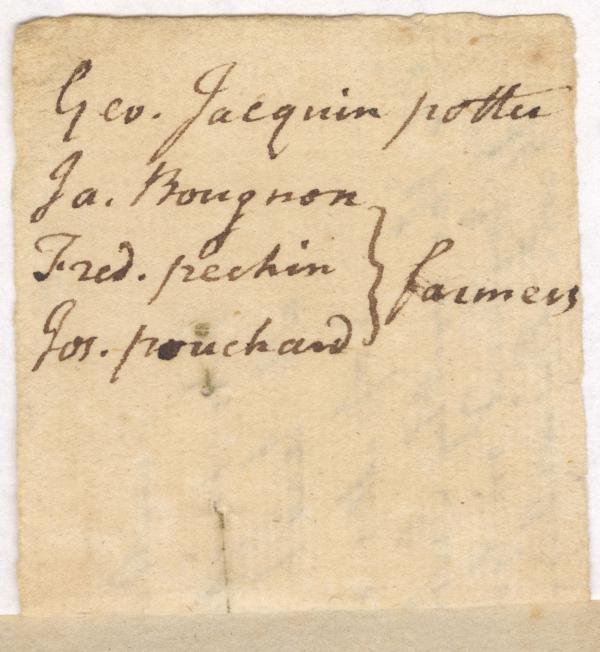 Geo. Jacquin potter
Ja. Bougnon
Fred. pechin
Jos. pouchard
} farmers